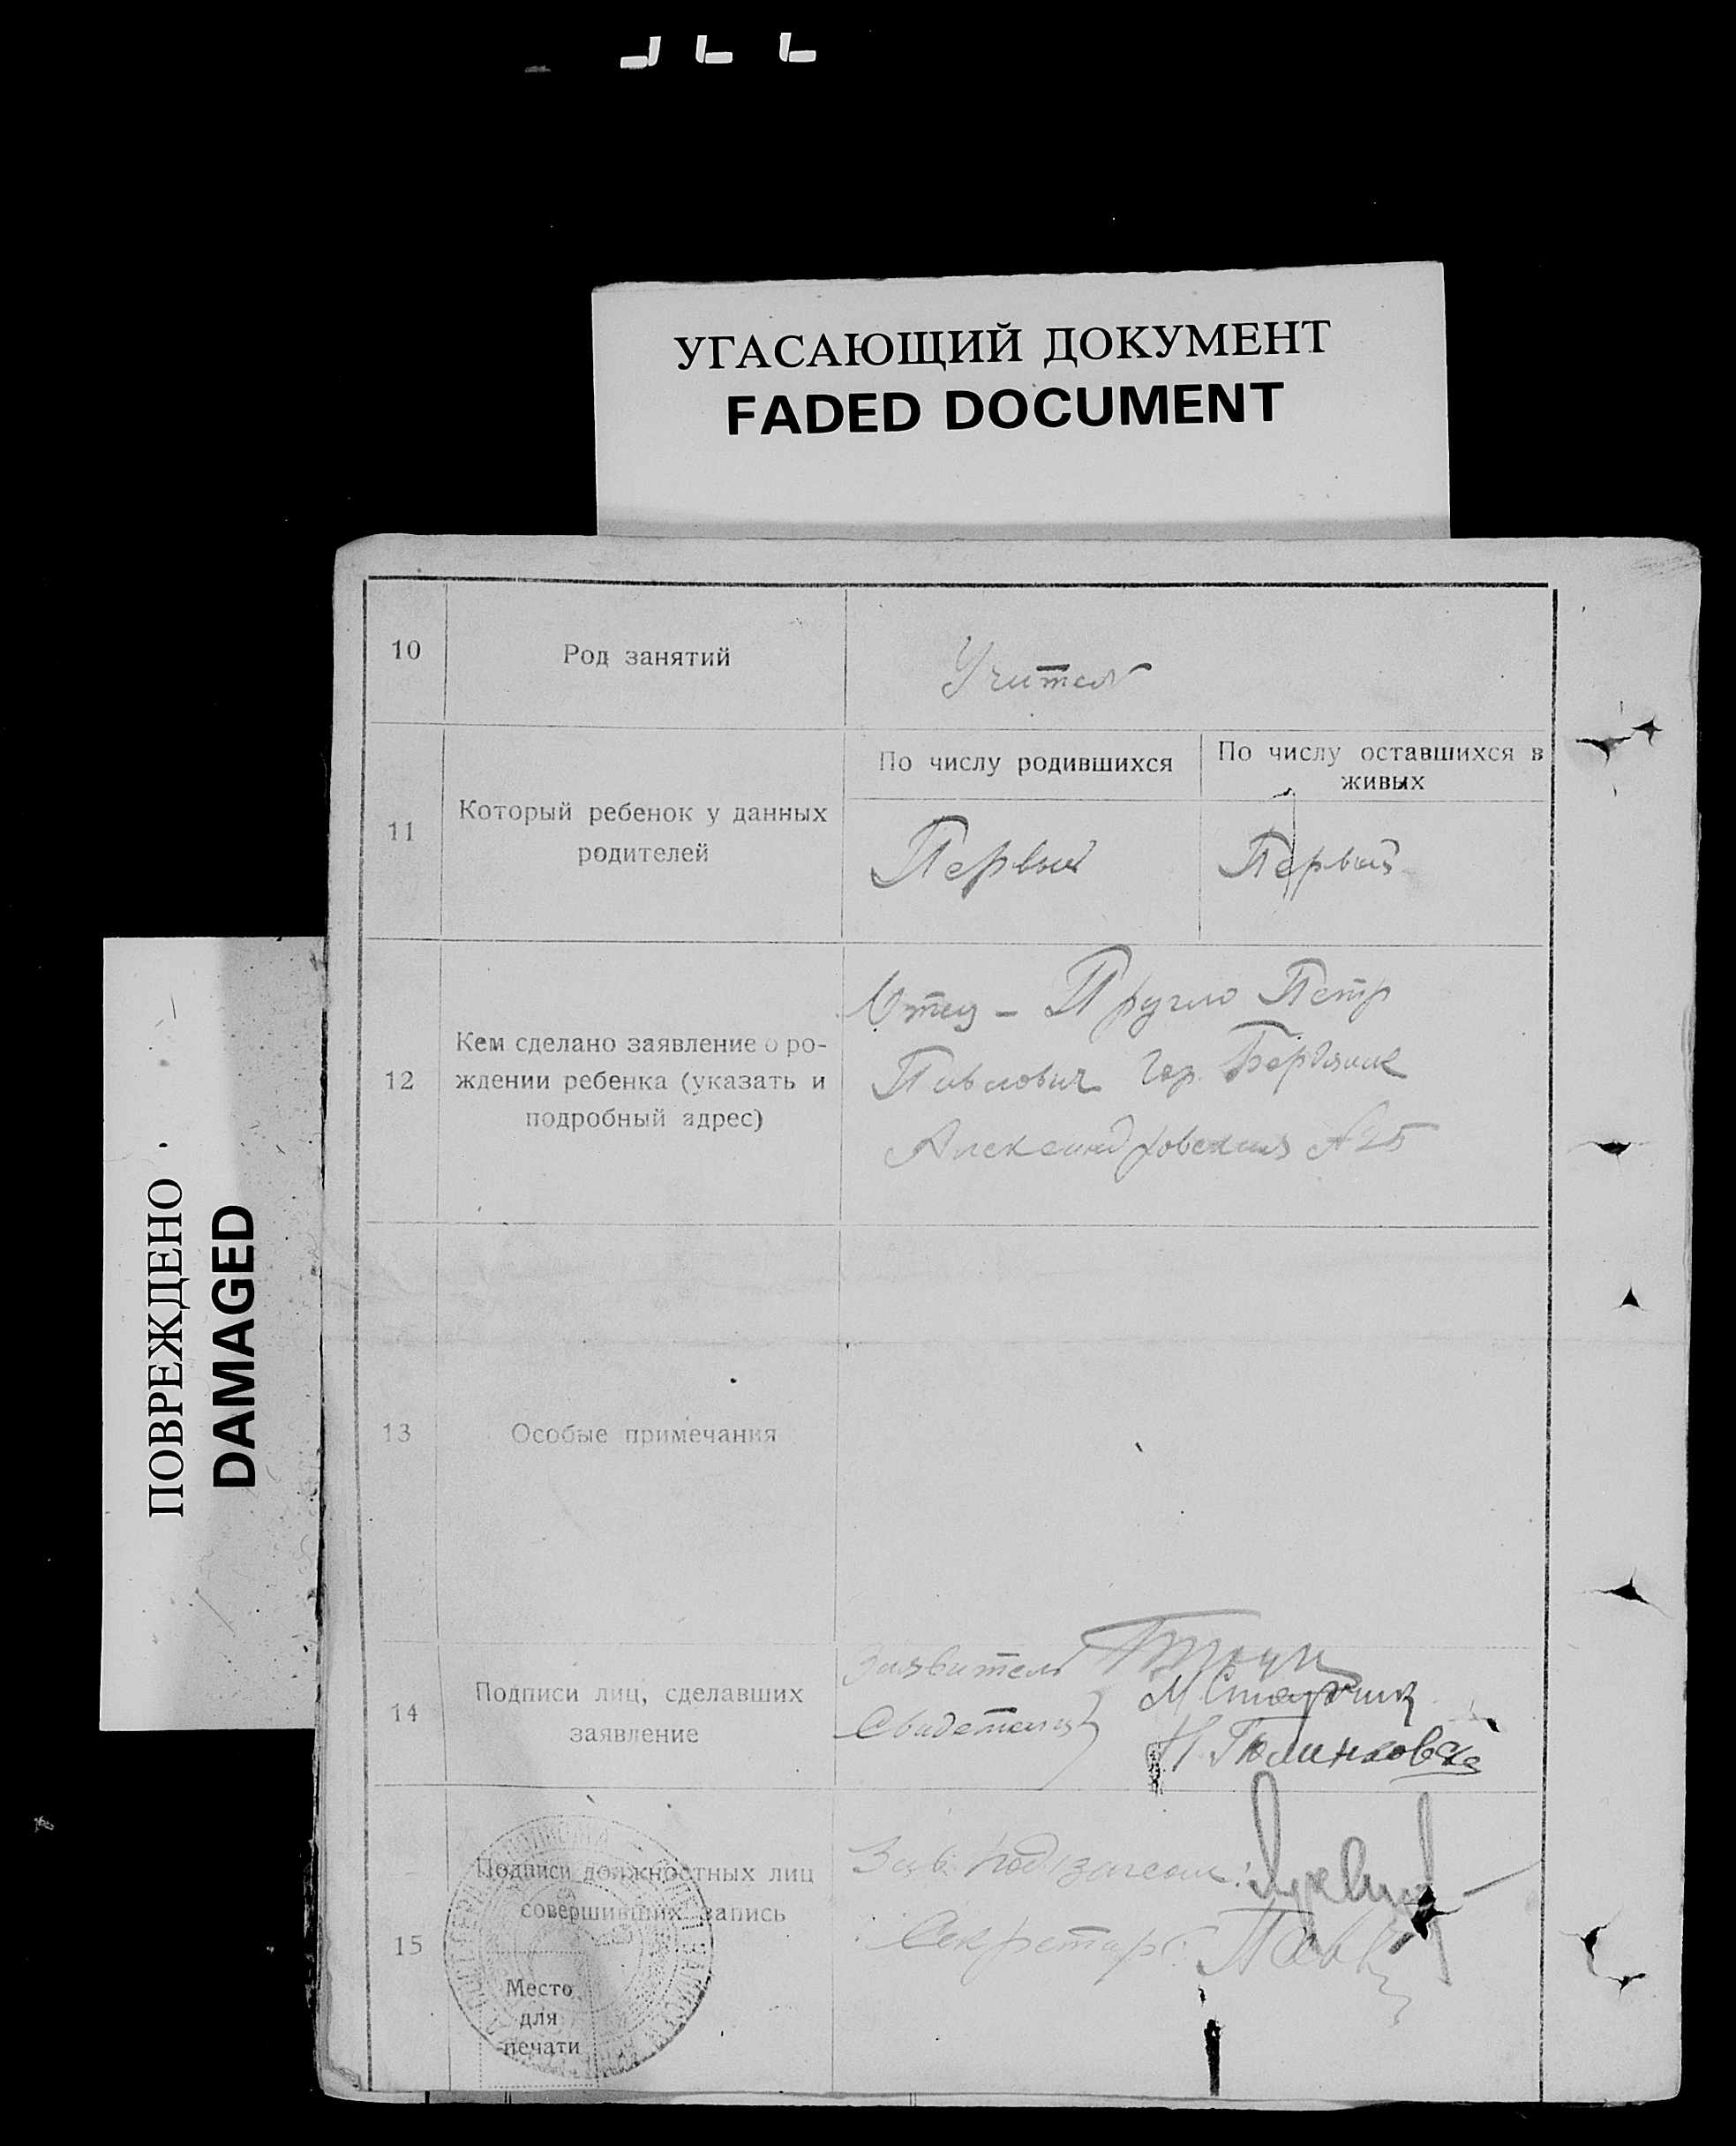 УГАСАЮЩИЙ ДОКУМЕНТ
FADED DOCUMENT
ПОВРЕЖДЕНО
DAMAGED
10
Род занятий
Учитель
11
Который ребенок у данных
родителей
По числу родившихся
Первый
По числу оставшихся в
живых
Первый
12
Кем сделано заявление о ро-
ждении ребенка (указать и
подробный адрес)
Отец - Пругло Петр
Павлович гор. Бердянск
Александровская № 25
13
Особые примечания
14
Подписи лиц, сделавших
заявление
Заявитель
Свидетели
М.
Н.
15
Подписи должностных лиц
совершивших запись
Место
для
печати
Зав. Подзагсом:
Секретарь: